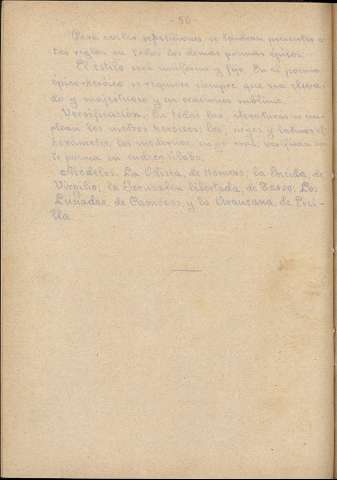 - 50 -
Para evitar repeticiones se tendrán presentes es-
tas reglas en todos los demás poemas épicos.
El estilo será uniforme y fijo. En el poema
épico-heróico se requiere siempre que sea eleva-
do y majestuoso y en ocasiones sublime.
Versificación. En todas las literaturas se em-
plean los metros heroicos: los griegos y latinos el
hexámetro, los modernos,
te poema en endecasílabo.
Modelos. La Odisea, de Homero, la Eneida, de
Virgilio, la Jerusalén libertada, de Tasso, Los
Lusiadas, de Camoens, y la Araucana, de Erci-
lla.